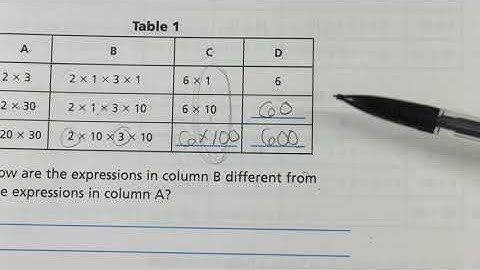 Table 1
A B C D
2 × 3 2 × 1 × 3 × 1 6 × 1 6
2 × 30 2 × 1 × 3 × 10 6 × 10 60
20 × 30 2 × 10 × 3 × 10 6 × 100 600
ow are the expressions in column B different from
e expressions in column A?